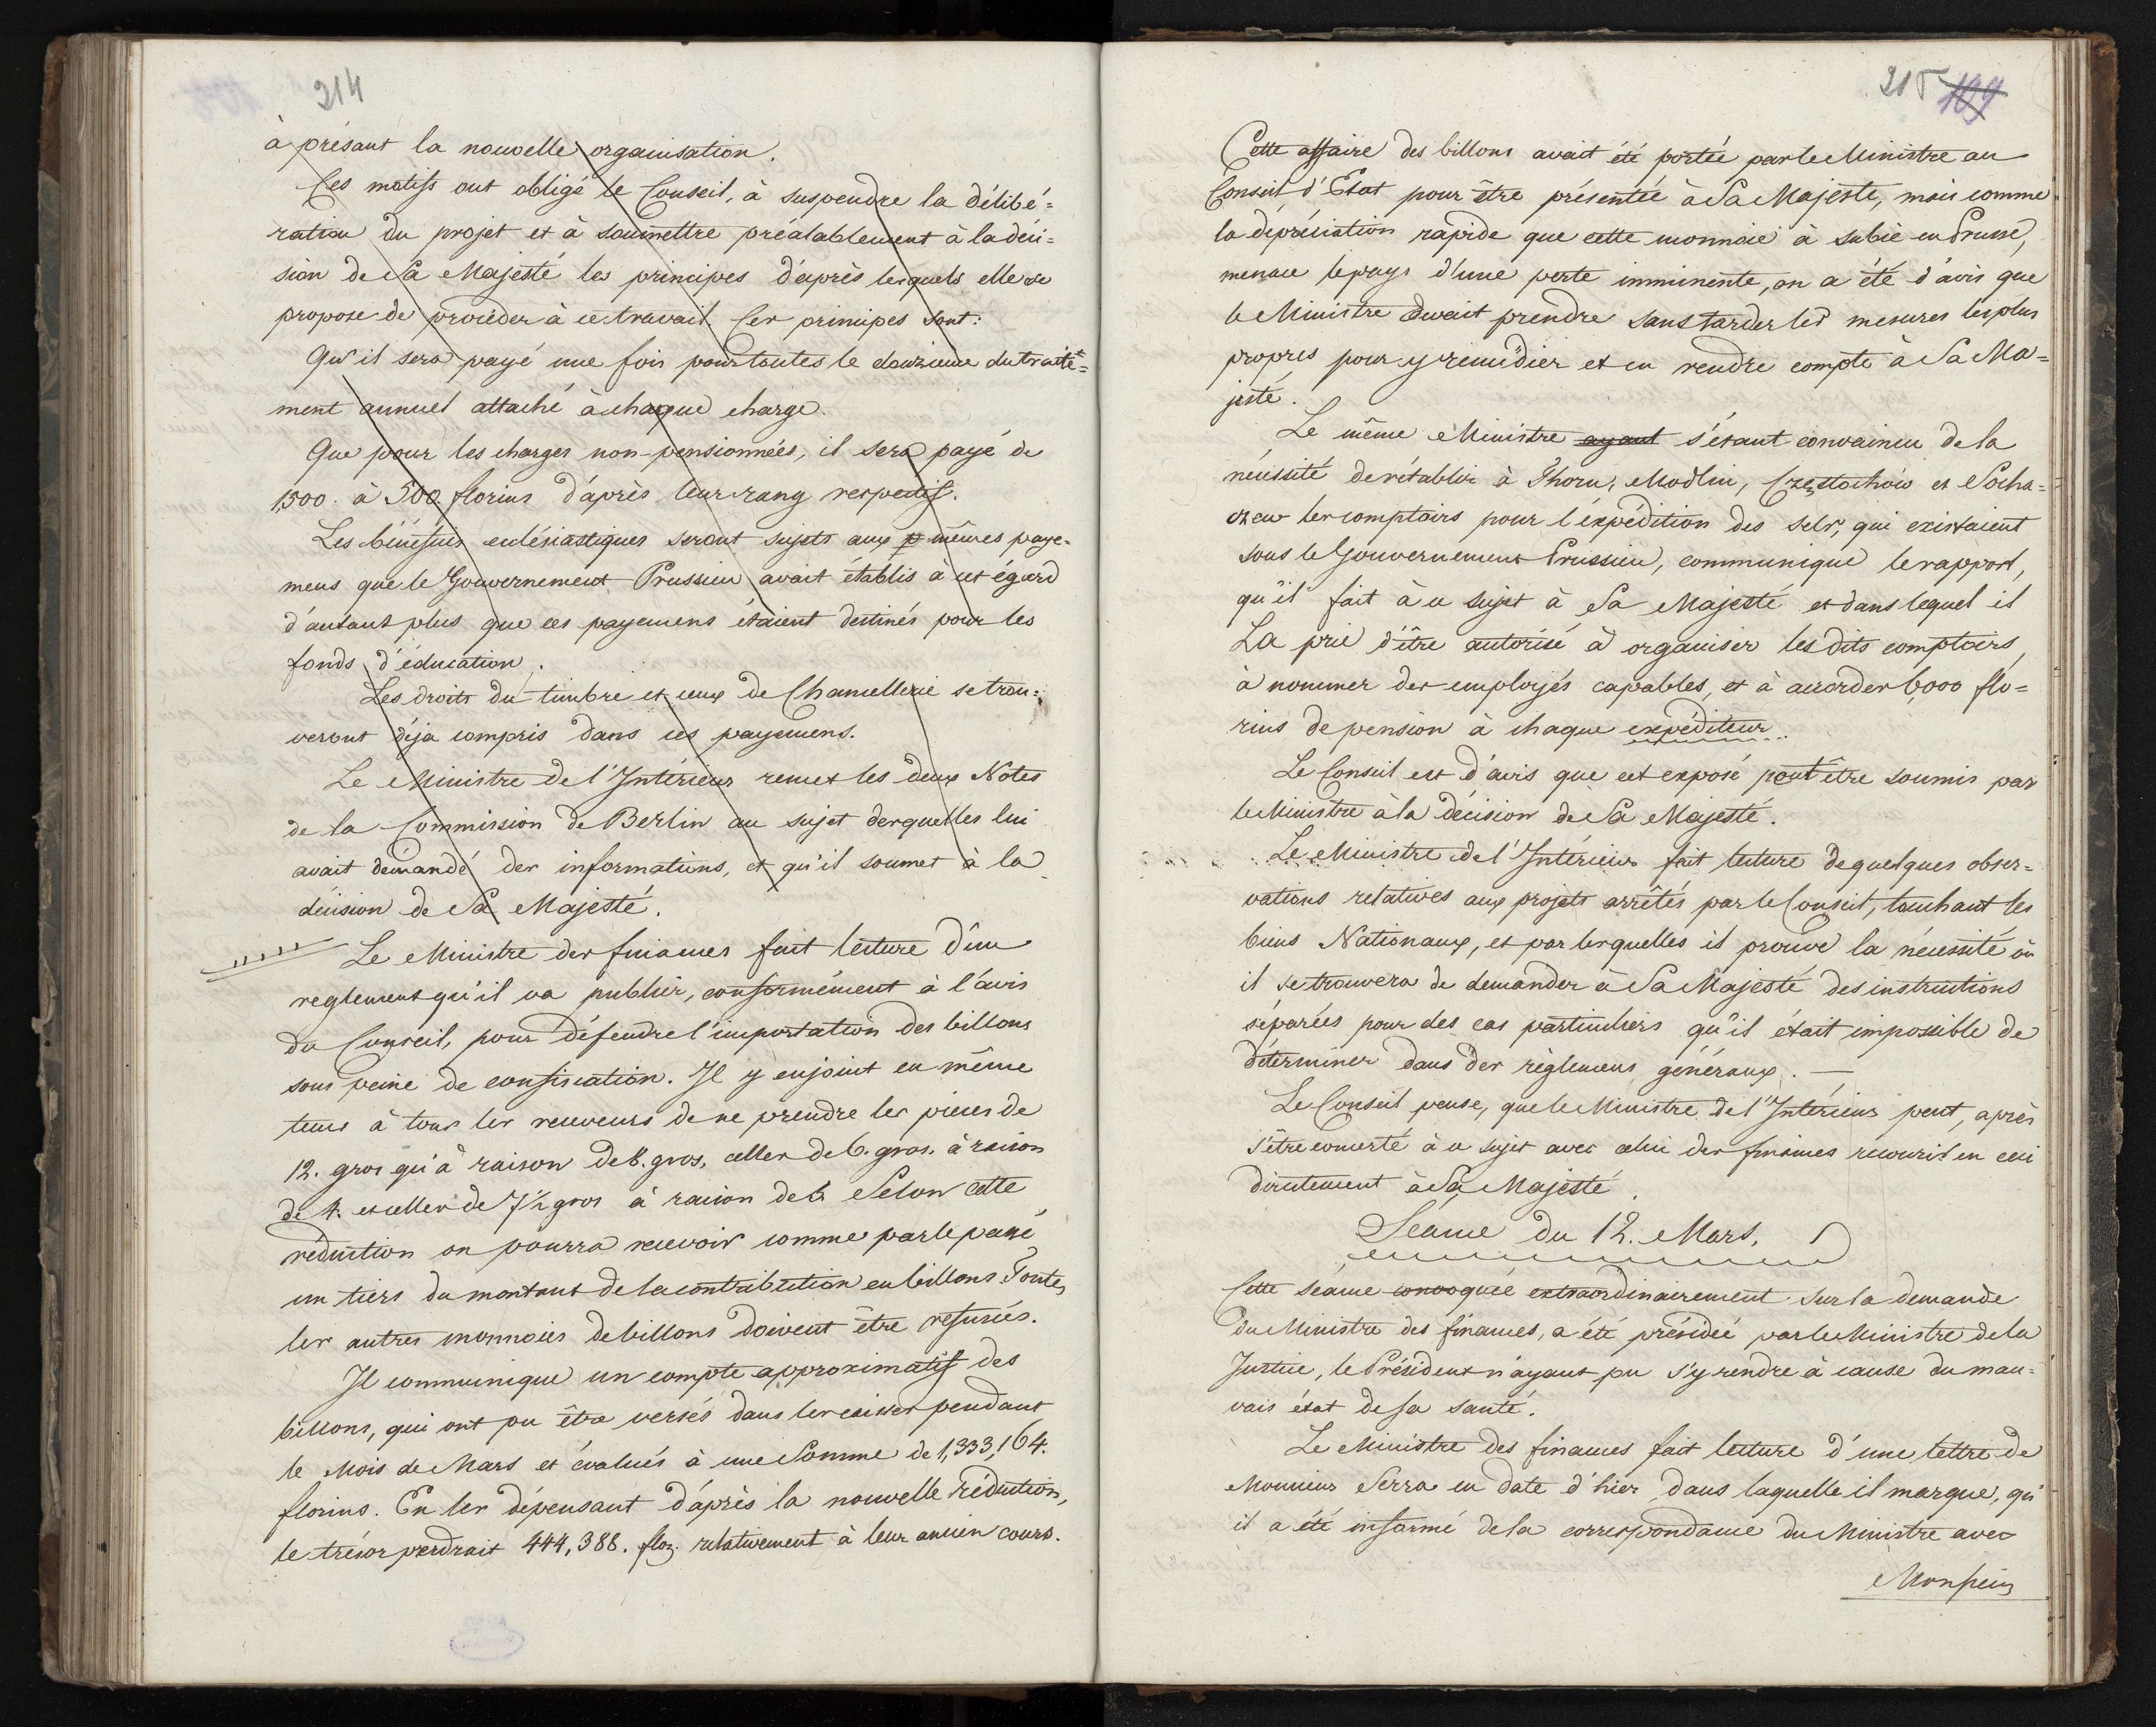 214
à présant la nouvelle organisation.
Ces motifs ont obligé le Conseil, à suspendre la délibé=
ration du projet et à soumettre préalablement à la déci=
sion de Sa Majesté les principes d'après lesquels elle se
propose de procéder à ce travail. Ces principes sont:
Qu'il sera payé une fois pour toutes le douzieme du traite=
ment annuel attaché à chaque charge.
Que pour les charges non-pensionnées, il sera payé de
1,500. à 500. florins d'après leur rang respectif.
Les bénéfices eclésiastiques seront sujets aux p mêmes paye=
mens que le Gouvernement Prussien avait établis à cet égard
d'autant plus que ces payemens étaient destinés pour les
fonds d'éducation.
Les droits du timbre et ceux de Chancellerie se trou=
veront déja compris dans ces payemens.
Le Ministre de l'Intérieur remet les deux Notes
de la Commission de Berlin au sujet desquelles lui
avait demandé des informations, et qu'il soumet à la
décision de Sa Majesté.
Le Ministre des finances fait lecture d'un
reglement qu'il va publier, conformément à l'avis
du Conseil, pour défendre l'importation des billons
sous peine de confiscation. Il y enjoint en même
tems à tous les receveurs de ne prendre les pieces de
12. gros qu'à raison de 8. gros, celles de 6. gros. à raison
de 4. et celles de 7½ gros à raison de 5. Selon cette
réduction on pourra recevoir comme par le passé
un tiers du montant de la contribution en billons. Toutes
les autres monnoies de billons doivent être refusées.
Il communique un compte approximatif des
billons, qui ont pu être versés dans les caisses pendant
le Mois de Mars et évalués à une Somme de 1,333,164.
florins. En les dépensant d'après la nouvelle réduction,
le trésor perdrait 444,388. flor. relativement à leur ancien cours.
215 109
Cette affaire des billons avait été portée par le Ministre au
Conseil d'Etat pour être présentée à Sa Majesté, mais comme
la dépréciation rapide que cette monnoie à subie en Prusse,
menace le pays d'une perte imminente, on a été d'avis que
le Ministre devait prendre sans tarder les mesures les plus
propres pour y remédier et en rendre compte à Sa Ma=
jesté.
Le même Ministre ayant s'étant convaincu de la
nécessité de rétablir à Thorn, Modlin, Częstochów et Socha=
czew les comptoirs pour l'expédition des sels, qui existaient
sous le Gouvernement Prussien, communique le rapport,
qu'il fait à ce sujet à Sa Majesté et dans lequel il
La prie d'être autorisé à organiser les dits comptoirs,
à nommer des employés capables, et à accorder 6,000 flo=
rins de pension à chaque expéditeur.
Le Conseil est d'avis que cet exposé peut être soumis par
le Ministre à la décision de Sa Majesté.
Le Ministre de l'Intérieur fait lecture de quelques obser=
vations relatives aux projets arrêtés par le Conseil, touchant les
biens Nationaux, et par lesquelles il prouve la nécessité où
il se trouvera de demander à Sa Majesté des instructions
séparées pour des cas particuliers qu'il était impossible de
déterminer dans des règlemens généraux. —
Le Conseil pense, que le Ministre de l'Intérieur peut, après
s'être concerté à ce sujet avec celui des finances recourir en ceci
directement à Sa Majesté.
Séance du 12. Mars.
Cette séance convoquée extraordinairement sur la demande
du Ministre des finances, a été présidée par le Ministre de la
Justice, le Président n'ayant pu s'y rendre à cause du mau=
vais état de sa santé.
Le Ministre des finances fait lecture d'une lettre de
Monsieur Serra en date d'hier dans laquelle il marque, qu'
il a été informé de la correspondance du Ministre avec
Monsieur